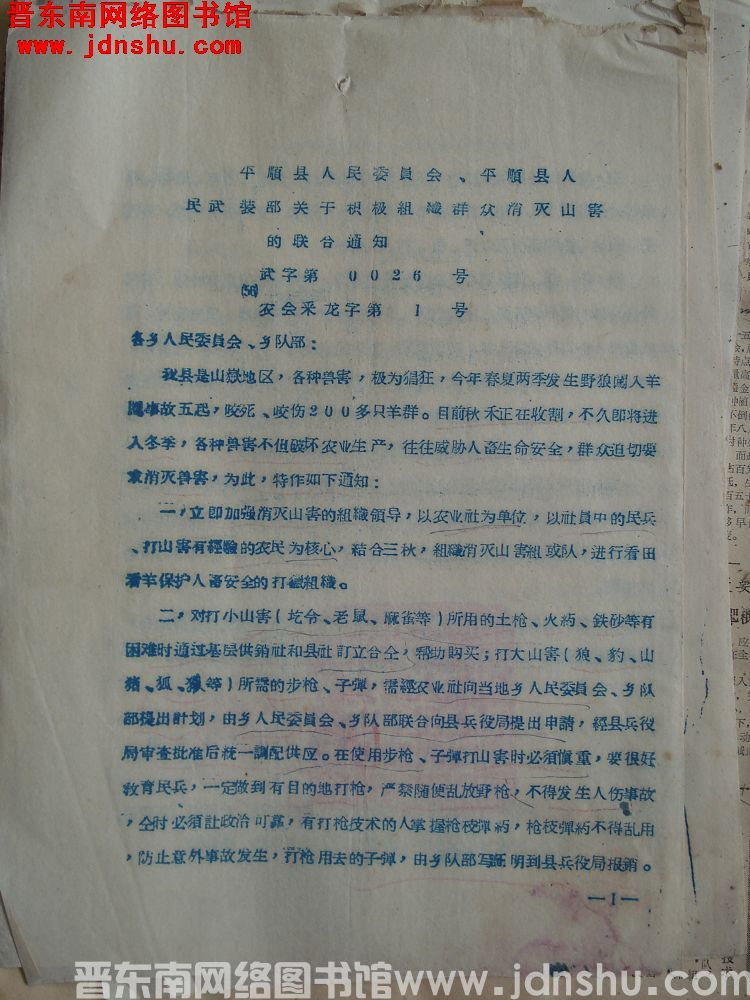 晋东南网络图书馆
www.jdnshu.com
平順县人民委員会、平順县人
民武装部关于积极組織群众消灭山害
的联合通知
武字第0026号
(56)
农会采龙字第1号
各乡人民委員会、乡队部：
我县是山嶽地区，各种兽害，极为猖狂，今年春夏两季发生野狼闖入羊
圈事故五起，咬死、咬伤200多只羊群。目前秋禾正在收割，不久即将进
入冬季，各种兽害不但破坏农业生产，往往威胁人畜生命安全，群众迫切要
求消灭兽害，为此，特作如下通知：
一，立即加强消灭山害的組織領导，以农业社为单位，以社員中的民兵
、打山害有經驗的农民为核心，結合三秋，組織消灭山害組或队，进行看田
看羊保护人畜安全的打獵組織。
二，对打小山害（圪令、老鼠、麻雀等）所用的土枪、火葯、鉄砂等有
困难时通过基层供銷社和县社訂立合仝，帮助购买；打大山害（狼、豹、山
猪、狐、獾等）所需的步枪、子弹，需經农业社向当地乡人民委員会、乡队
部提出計划，由乡人民委員会、乡队部联合向县兵役局提出申請，經县兵役
局审查批准后統一調配供应。在使用步枪、子弹打山害时必須慎重，要很好
教育民兵，一定做到有目的地打枪，严禁随便乱放野枪，不得发生人伤事故
，仝时必須註政治可靠，有打枪技术的人掌握枪枝弹葯，枪枝弹葯不得乱用
，防止意外事故发生，打枪用去的子弹，由乡队部写証明到县兵役局报銷。
—1—
晋东南网络图书馆 www.jdnshu.com